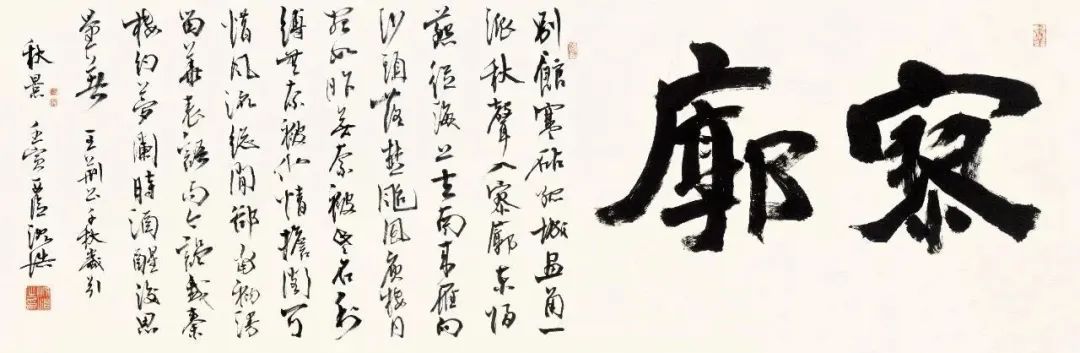 寥廓
別館寒砧孤城畫角一
派秋聲入寥廓東歸
燕從海上去南來雁向
沙頭落楚颱風庾樓月
宛如昨無奈被些名利
縛無奈被他情擔閣可
惜風流總閒卻當初漫
留華表語而今誤我秦
樓約夢闌時酒醒後思
量著 王荊公千秋歲引
秋景 壬寅